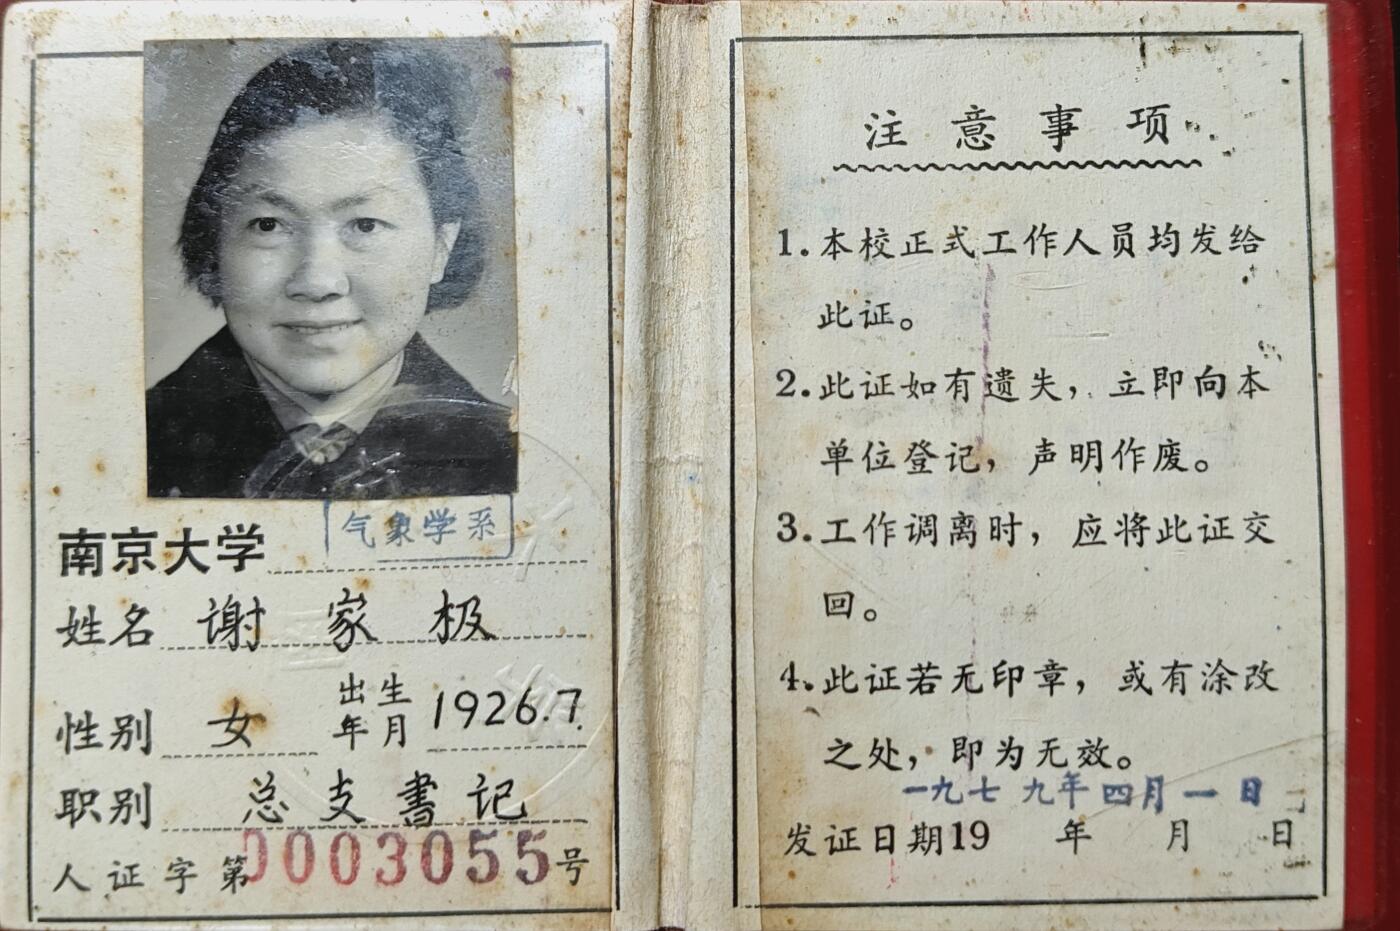 南京大学 气象学系
姓名 谢家极
性别 女 出生年月 1926.7.
职别 总支書记
人证字第0003055号
注意事项
1.本校正式工作人员均发给
此证。
2.此证如有遗失，立即向本
单位登记，声明作废。
3.工作调离时，应将此证交
回。
4.此证若无印章，或有涂改
之处，即为无效。
一九七九年四月一日
发证日期19 年 月 日